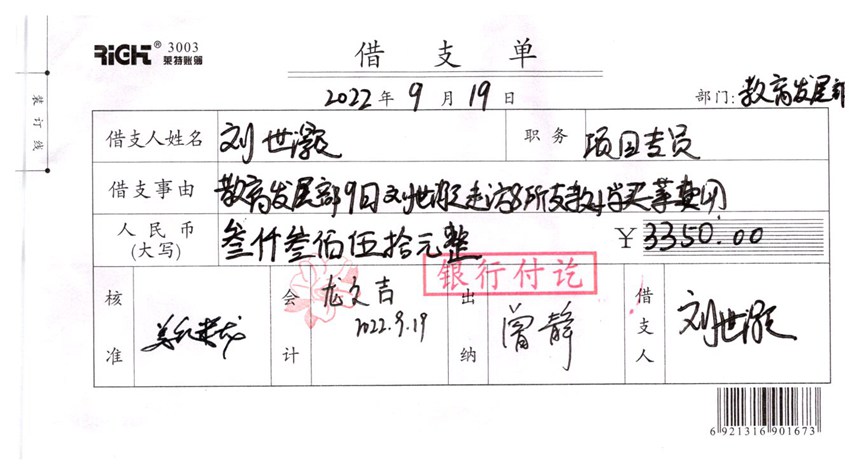 RiGHT® 3003
莱特账簿
借支单
2022年9月19日
部门:教育发展部
装订线
借支人姓名 刘世灏 职务 项目专员
借支事由 教育发展部9月刘世灏走访8所支教小学买菜费用
人民币(大写) 叁仟叁佰伍拾元整 ¥3350.00
银行付讫
核准
会计 龙文吉
2022.9.19
出纳 曾静
借支人 刘世灏
6 921316 901673